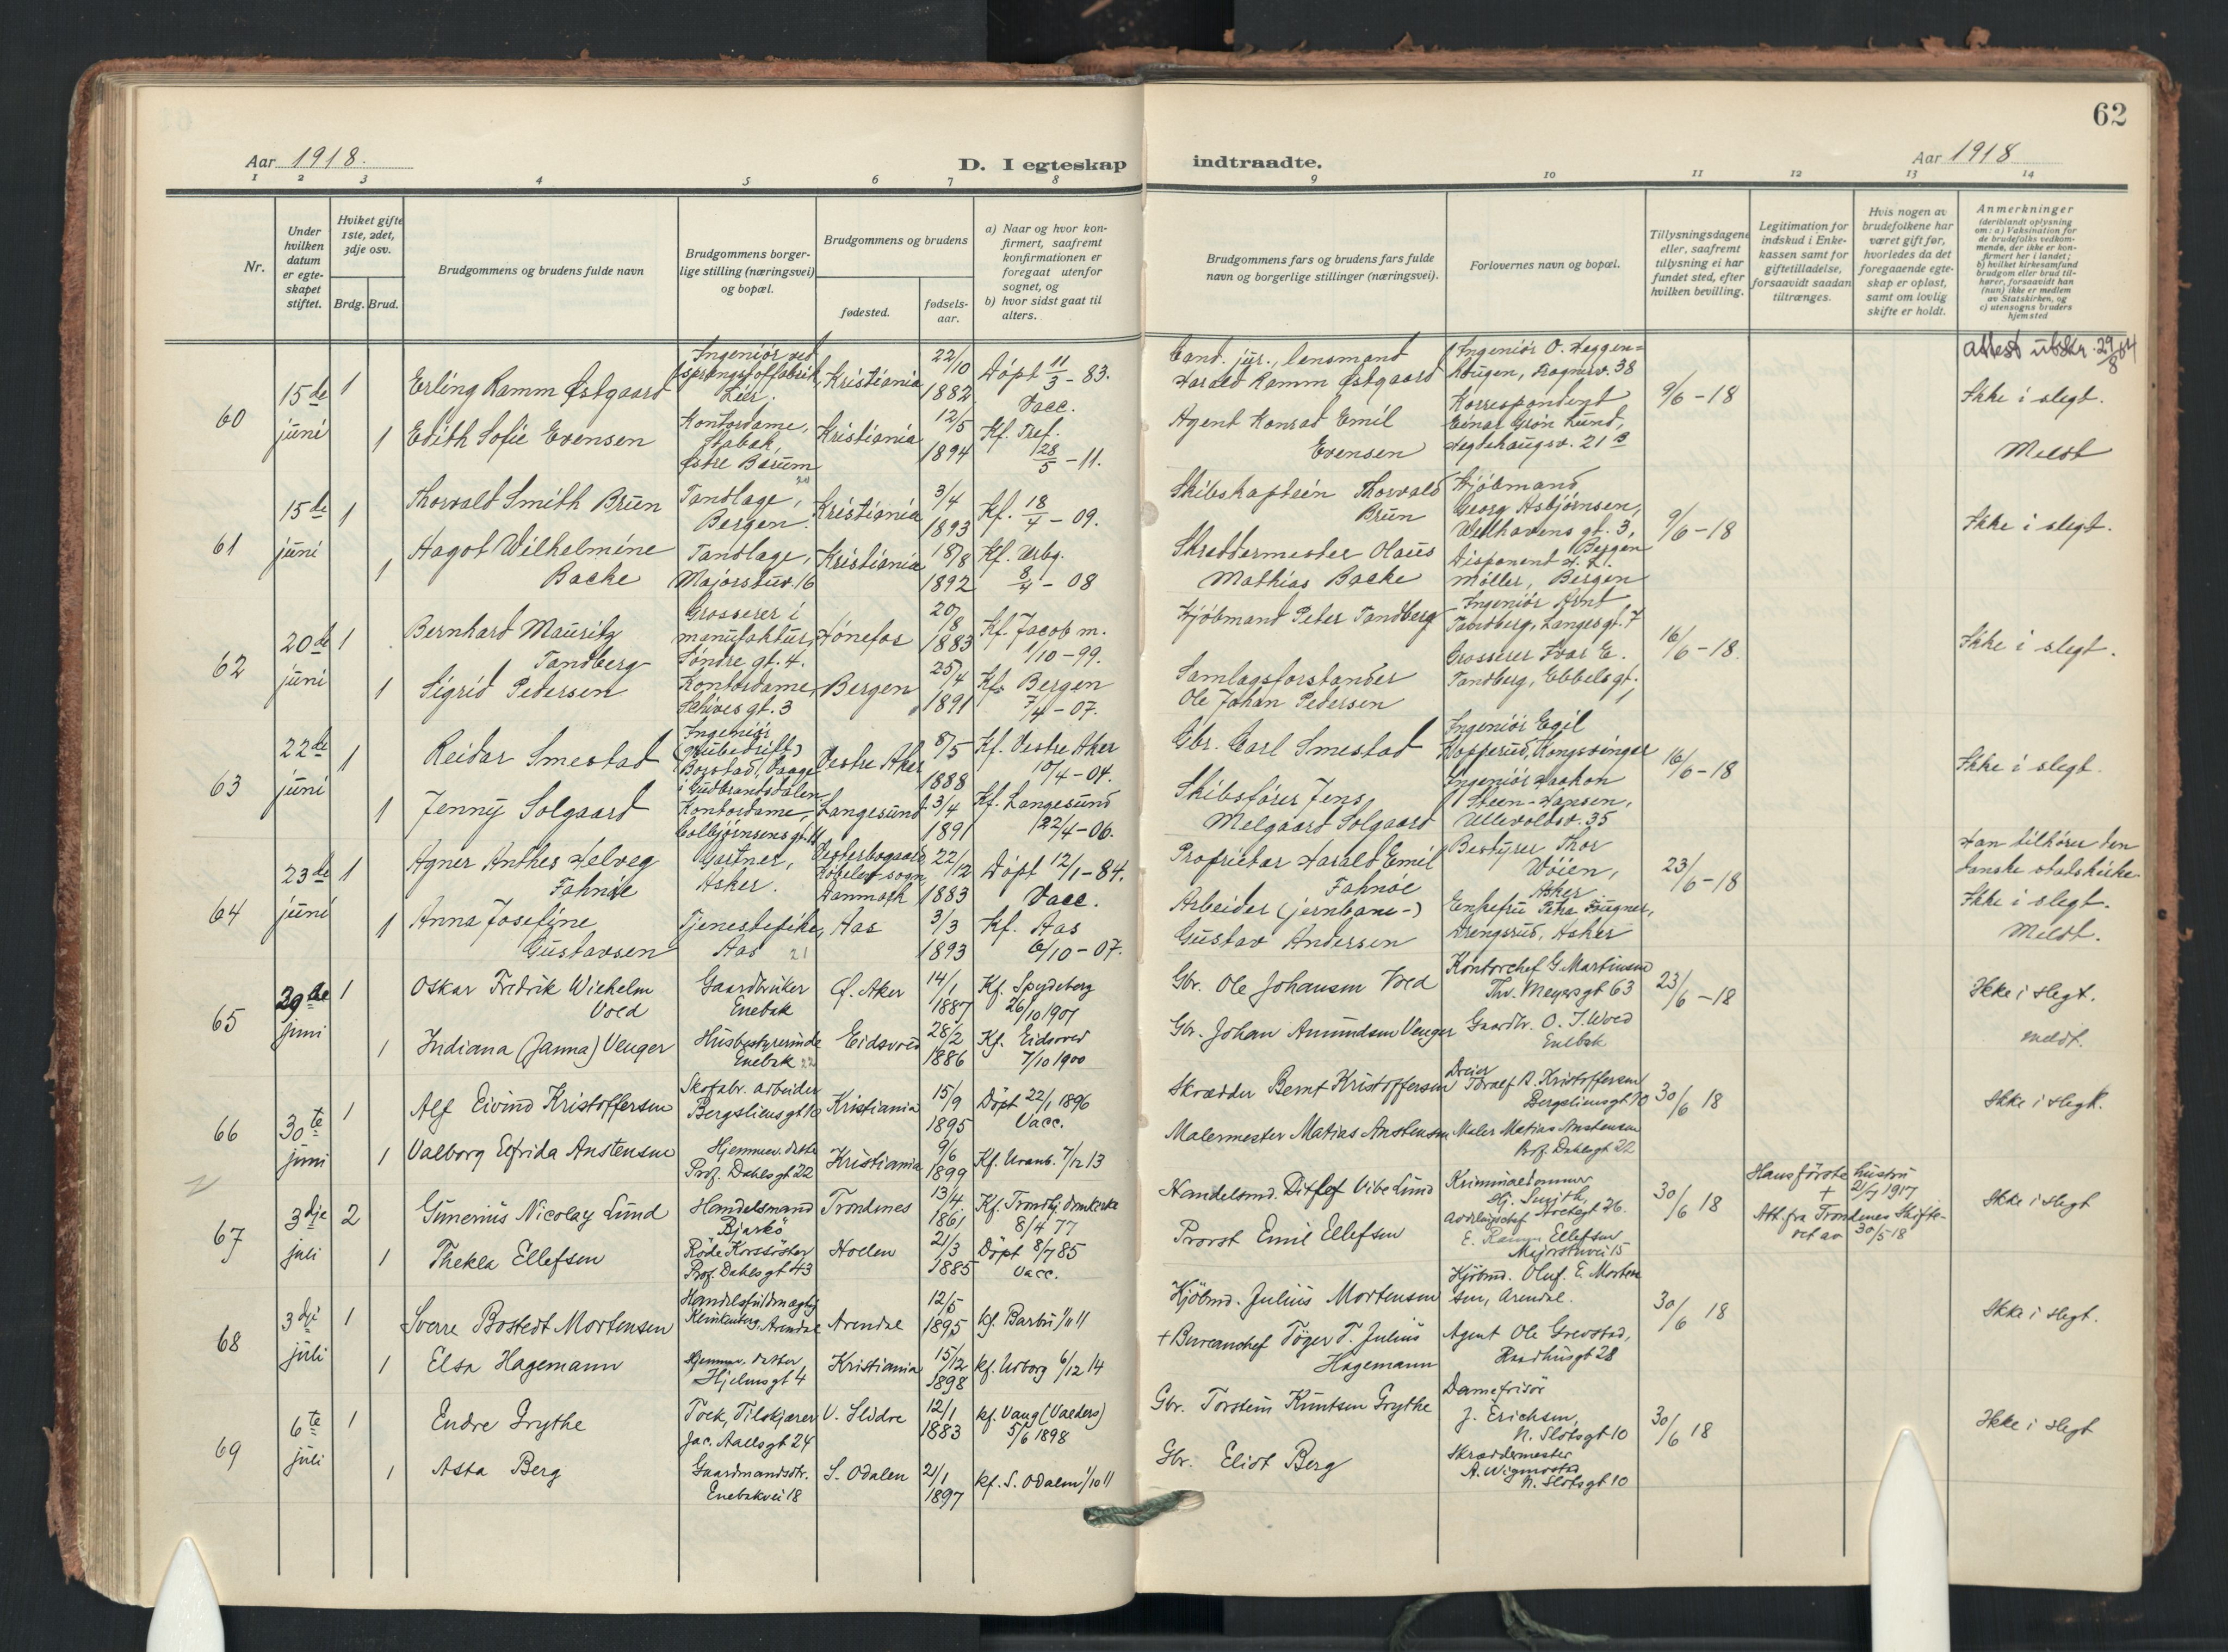 62
Aar 1918.
D. I egteskap
indtraadte.
Aar 1918
1 2 3 4 5 6 7 8 9 10 11 12 13 14
Nr.
Under hvilken datum er egteskapet stiftet.
Hvilket gifte 1ste, 2det, 3dje osv.
Brdg. Brud.
Brudgommens og brudens fulde navn
Brudgommens borgerlige stilling (næringsvei) og bopæl.
Brudgommens og brudens
fødested.
fødselsaar.
a) Naar og hvor konfirmert, saafremt konfirmationen er foregaat utenfor sognet, og
b) hvor sidst gaat til alters.
Brudgommens fars og brudens fars fulde navn og borgerlige stillinger (næringsvei).
Forlovernes navn og bopæl.
Tillysningsdagene eller, saafremt tillysning ei har fundet sted, efter hvilken bevilling.
Legitimation for indskud i Enkekassen samt for giftetilladelse, forsaavidt saadan tiltrænges.
Hvis nogen av brudefolkene har været gift før, hvorledes da det foregaaende egteskap er opløst, samt om lovlig skifte er holdt.
Anmerkninger
(deriblandt oplysning om: a) Vaksination for de brudefolks vedkommende, der ikke er konfirmert her i landet; b) hvilket kirkesamfund brudgom eller brud tilhører, forsaavidt han (hun) ikke er medlem av Statskirken, og c) utensogns bruders hjemsted
60
15de juni
1
Erling Ramm Østgaard
Ingeniør ved sprengstoffabrik, Lier.
Kristiania
22/10 1882
Døpt 11/3 - 83. Vacc.
Cand. jur., lensmand Harald Ramm Østgaard
Ingeniør O. Heggenhougen, Bognsv. 38
9/6 - 18
attest utskr. 29/8 64
Ikke i slegt.
1
Edith Sofie Evensen
Kontordame, Stabæk, Østre Bærum
Kristiania
12/5 1894
Kf. Tref. 28/5 - 11.
Agent Konrad Emil Evensen
Korrespondent Einar Grøn Lund, Hegdehaugsv. 21 B
Meldt
61
15de juni
1
Thorvald Smith Brun
Tandlæge, Bergen.
Kristiania
3/4 1893
Kf. 18/4 - 09.
Skibskaptein Thorvald Brun
Kjøbmand Georg Asbjørnsen, Welhavens gt. 3, Bergen
9/6 - 18
Ikke i slegt.
1
Hagot Wilhelmine Backe
Tandlæge, Majorstuv. 16
Kristiania
18/8 1892
Kf. Urbg. 8/4 - 08
Skreddermester Olaus Mathias Backe
Disponent H. L. Møller, Bergen
62
20de juni
1
Bernhard Mauritz Tandberg
Grosserer i manufaktur, Søndre gt. 4.
Hønefos
20/8 1883
Kf. Jacob m. 1/10 - 99.
Kjøbmand Peter Tandberg
Ingeniør Arnt Tandberg, Langes gt. 7
16/6 - 18.
Ikke i slegt.
1
Sigrid Pedersen
Kontordame, Schives gt. 3
Bergen
25/4 1891
Kf. Bergen 7/4 - 07.
Samlagsforstander Ole Johan Pedersen
Grosserer Ivar E. Tandberg, Ebbels gt. 1
63
22de juni
1
Reidar Smestad
Ingeniør (grubedrift) Borstad, Vaage i Gudbrandsdalen
Vestre Aker
8/5 1888
Kf. Vestre Aker 10/4 - 04.
Gbr. Carl Smestad
Ingeniør Egil Hopperud, Kongsvinger
16/6 - 18
Ikke i slegt.
1
Jenny Solgaard
Kontordame, Colbjørnsens gt. 11
Langesund
23/4 1891
Kf. Langesund 22/4 - 06.
Skibsfører Jens Melgaard Solgaard
Ingeniør Haakon Steen-Hansen, Ullevoldsv. 35
64
23de juni
1
Agner Anthes Helveg Fahnøe
Gartner, Asker.
Vesterbogaard Købelev sogn Danmark
22/12 1883
Døpt 12/1 - 84. Vacc.
Proprietær Harald Emil Fahnøe
Bestyrer Thor Wøien, Asker
23/6 - 18
Han tilhører den danske statskirke.
Ikke i slegt.
1
Anna Josefine Gustavsen
Tjenestepike, Aas 21
Aas
3/3 1893
Kf. Aas 6/10 - 07.
Arbeider (jernbane-) Gustav Andersen
Enkefru Petra Fougner, Drengsrud, Asker
Meldt.
65
29de juni
1
Oskar Fredrik Wilhelm Vold
Gaardbruker Enebak
Ø. Aker
14/1 1887
Kf. Spydeberg 26/10 1901
Gbr. Ole Johansen Vold
Kontorchef G. Martinsen Thv. Meyersgt 63
23/6 - 18
Ikke i slegt.
1
Indiana (Janna) Venger
Husbestyrerinde Enebak 22
Eidsvold
28/2 1886
Kf. Eidsvold 7/10 1900
Gbr. Johan Amundsen Venger
Gaardbr. O. J. Wold Enebak
meldt.
66
30te juni
1
Alf Eivind Kristoffersen
Skofabr. arbeider Bergsliensgt 10
Kristiania
15/9 1895
Døpt 22/1 1896 Vacc.
Skrædder Bernt Kristoffersen
Dreier Toralf B. Kristoffersen Bergsliensgt 10
30/6 18
Ikke i slegt.
1
Valborg Elfrida Anstensen
Hjemmev. datter Prof. Dahlsgt 22
Kristiania
9/6 1899
Kf. Uranb. 7/12 13
Malermester Matias Anstensen
Maler Matias Anstensen Prof. Dahlsgt 22
67
3dje juli
2
Gunerius Nicolay Lund
Handelsmand Bjarkö
Trondenes
13/4 1861
Kf. Trondhj. domkirke 8/4 77
Handelsmd. Ditlef Vibe Lund
Kriminaldommer Hj. Smith, Nordregt 26.
30/6 18
Hans første hustru + 2/7 1917
Att. fra Trondenes Skifteret av 30/5 18
Ikke i slegt
1
Thekla Ellefsen
Røde Korssöster Prof. Dahlsgt 43
Holden
21/3 1885
Døpt 8/7 85 Vacc.
Prorst Emil Ellefsen
Avdelingschef E. Ramm Ellefsen Majorstuvei 15
68
3dje juli
1
Sverre Bostedt Mortensen
Handelsfuldmægtig Klinkenberg, Arendal
Arendal
12/5 1895
kf Barbu 1/10 11
Kjöbmd. Julius Mortensen
Kjöbmd. Oluf. E. Mortensen, Arendal.
30/6 18
Ikke i slegt.
1
Elsa Hagemann
Hjemmev. datter Hjelmsgt 4
Kristiania
15/12 1898
kf. Urborg 6/12 14
+ Bureauchef Töger T. Julius Hagemann
Agent Ole Grevstad, Raadhusgt 28
69
6te juli
1
Endre Grythe
Tock, Tilskjærer Jac. Aallsgt 24
V. Slidre
12/1 1883
kf. Vang (Valders) 5/6 1898
Gbr. Torstein Knutsen Grythe
Damefrisör J. Erichsen, N. Slotsgt 10
30/6 18
Ikke i slegt
1
Asta Berg
Gaardmandsdtr. Enebakvei 18
S. Odalen
21/1 1897
kf. S. Odalen 1/10 11
Gbr. Eliot Berg
Skræddermester A. Wigmostad N. Slotsgt 10